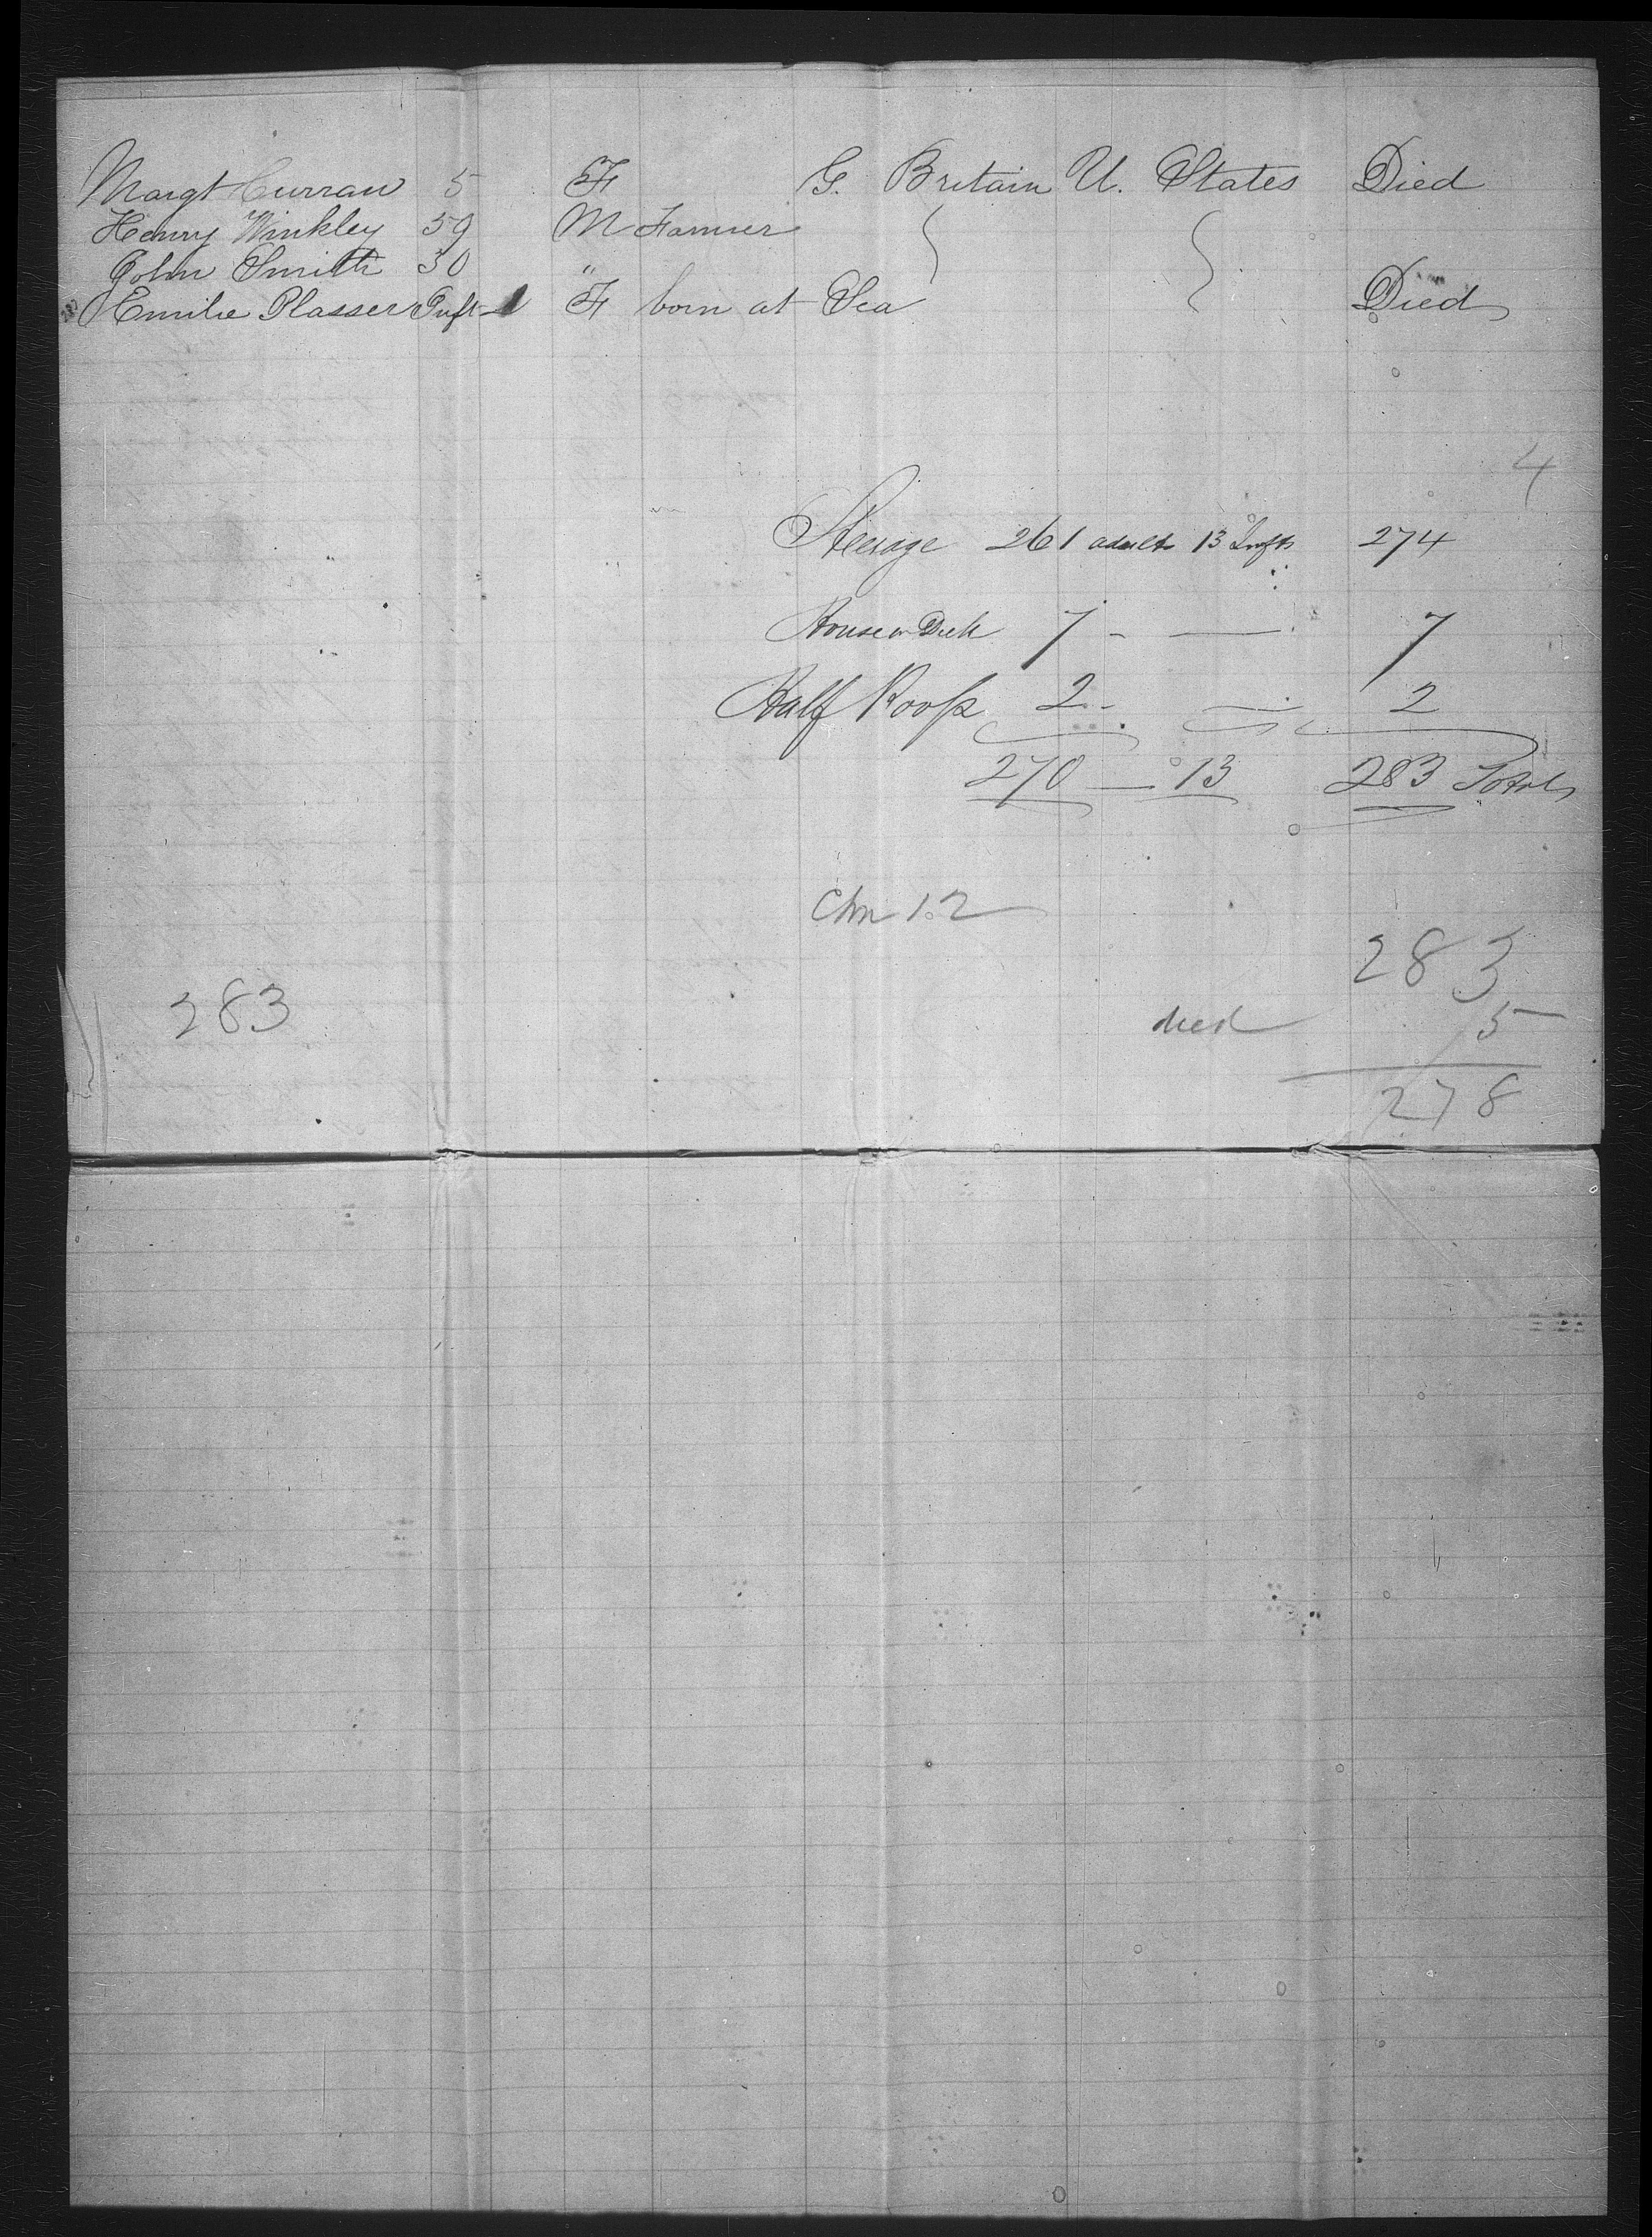 Margt Curran 5 F G. Britain U. States Died
Henry Winkley 59 M Farmer
John Smith 30 "
Emilie Plasser Inft F born at Sea Died
4
Steerage 261 adults 13 Infts 274
House on Deck 7 - — 7
Half Poop 2 - — 2
270 — 13 283 Total
283
283
died 5
278